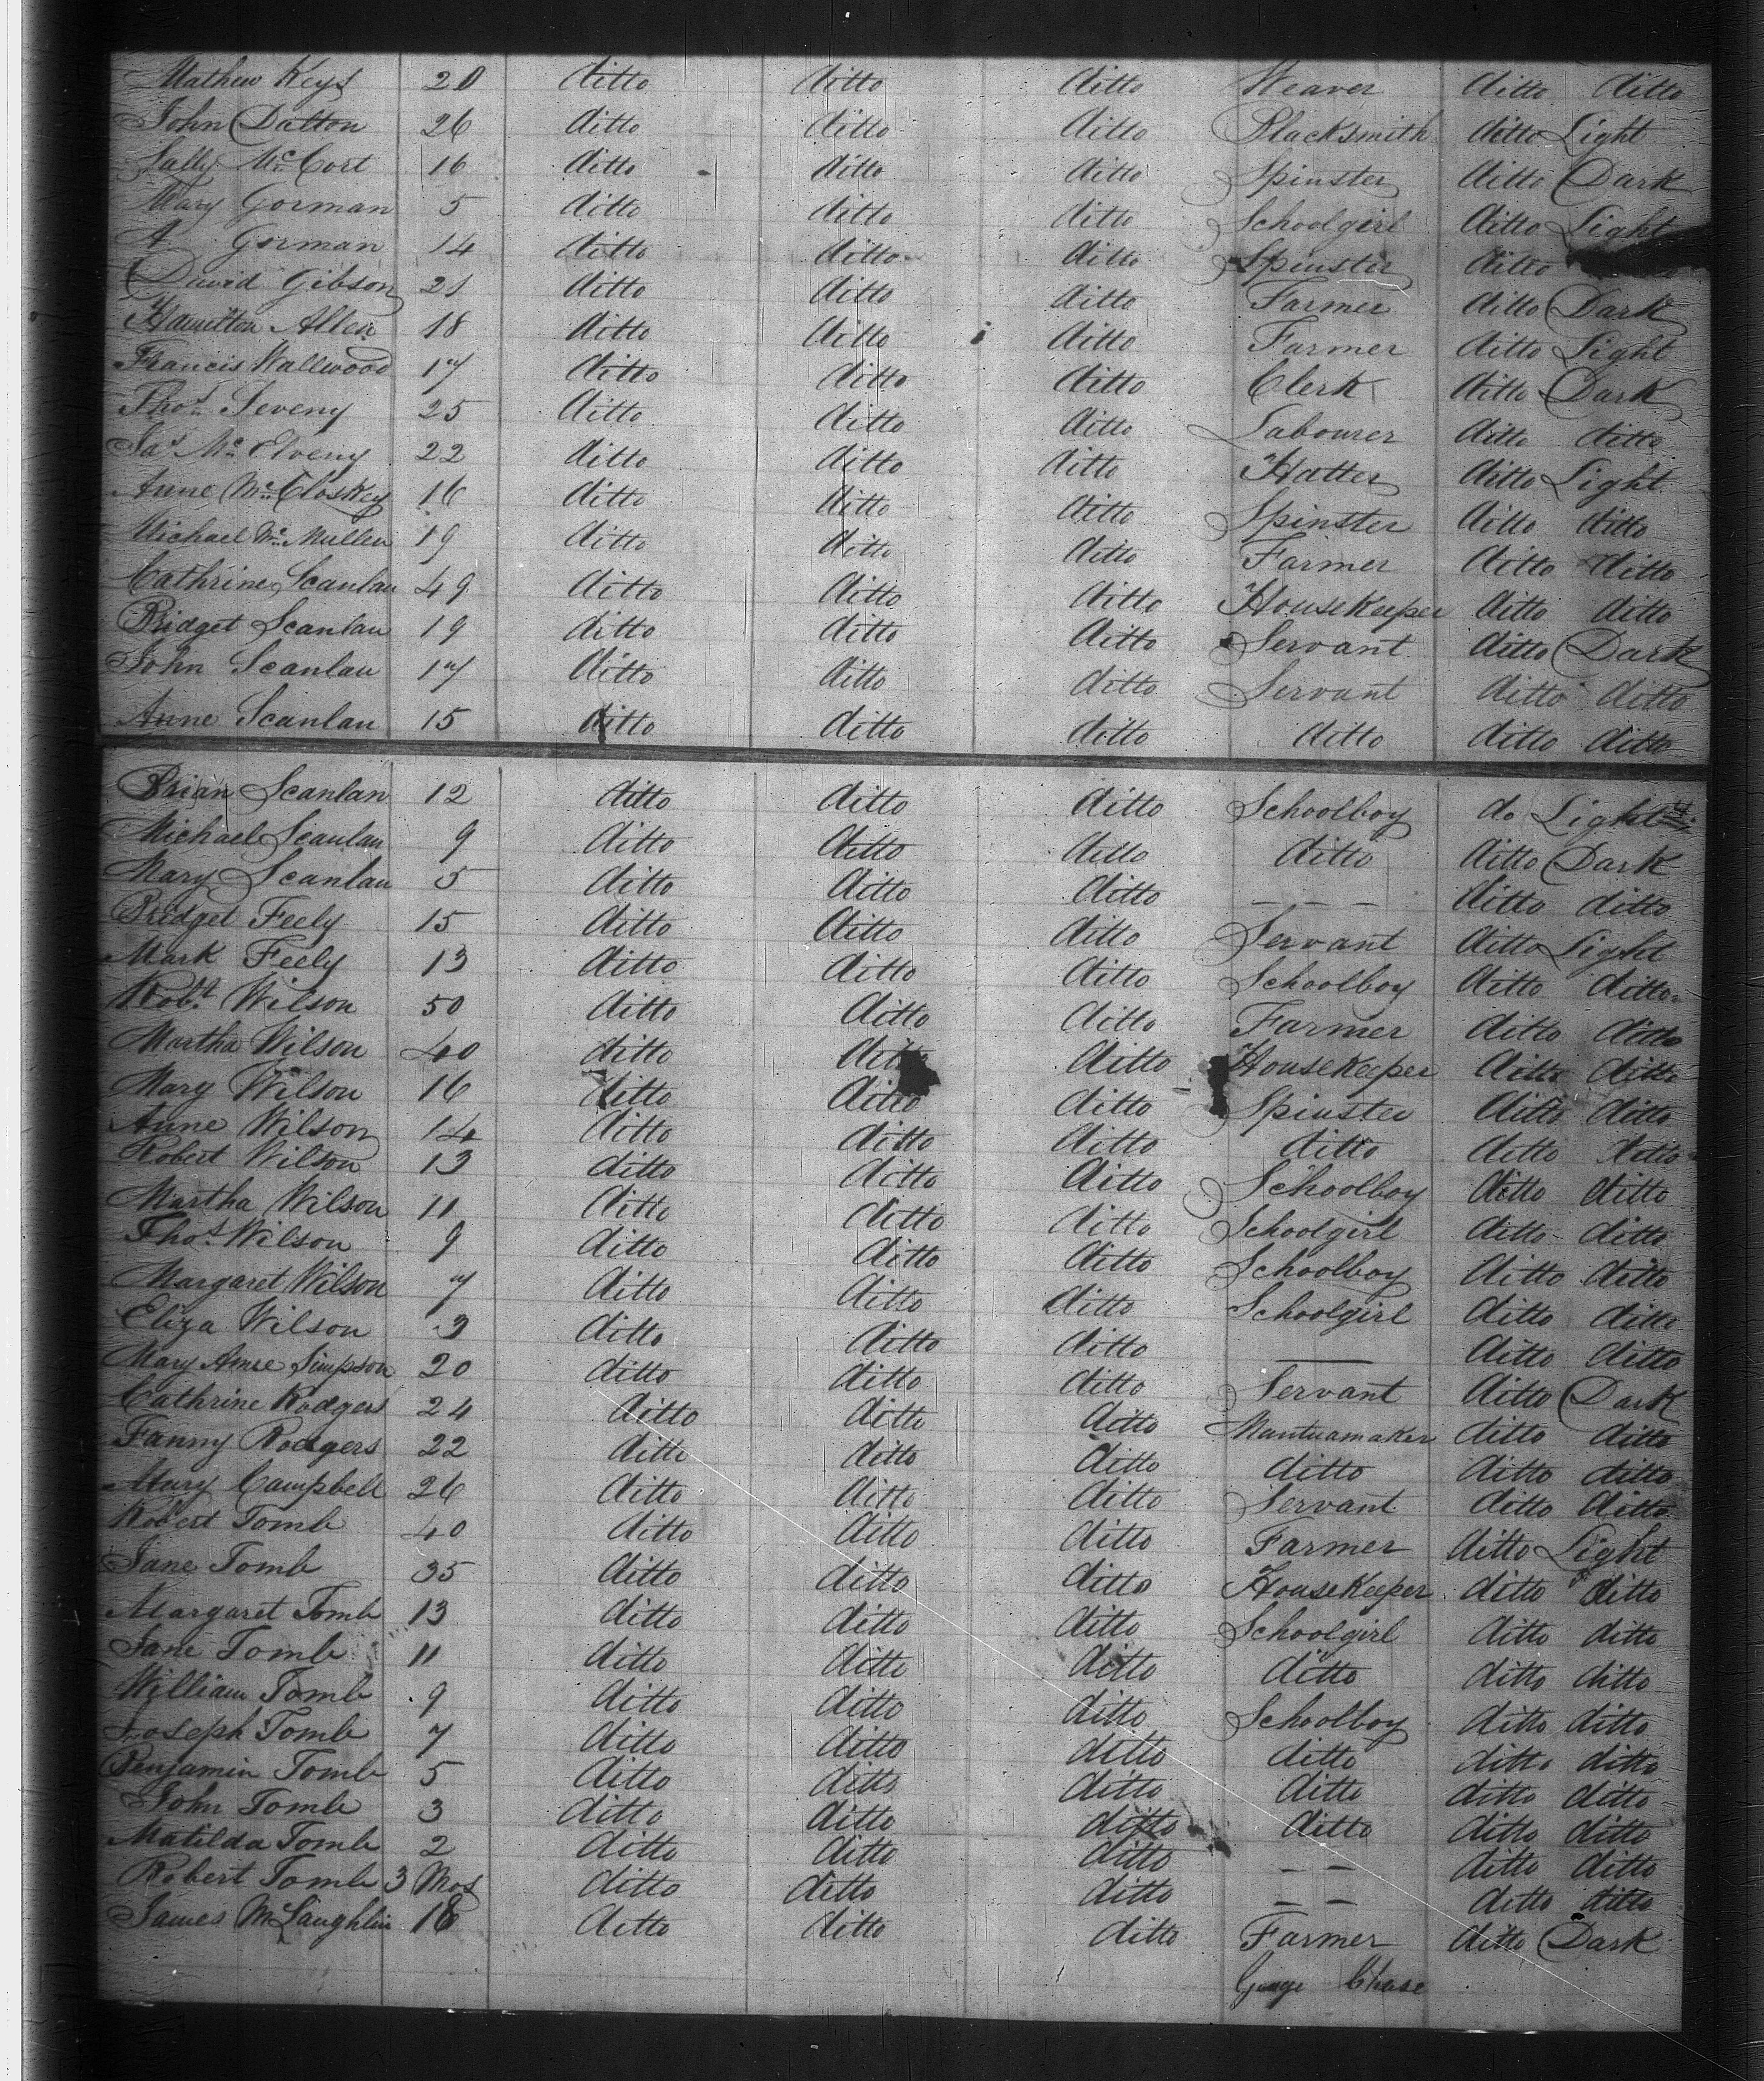 Mathew Keys 20 ditto ditto ditto Weaver ditto ditto
John Dalton 26 ditto ditto ditto Blacksmith ditto Light
Sally McCort 16 ditto ditto ditto Spinster ditto Dark
Mary Gorman 5 ditto ditto ditto Schoolgirl ditto Light
A. Gorman 14 ditto ditto ditto Spinster ditto
David Gibson 21 ditto ditto ditto Farmer ditto Dark
Hamilton Allen 18 ditto ditto ditto Farmer ditto Light
Francis Wallwood 17 ditto ditto ditto Clerk ditto Dark
Thos. Seveny 25 ditto ditto ditto Labourer ditto ditto
Jas McElveny 22 ditto ditto ditto Hatter ditto Light
Anne McCloskey 16 ditto ditto ditto Spinster ditto ditto
Michael McMullen 19 ditto ditto ditto Farmer ditto ditto
Cathrine Scanlan 49 ditto ditto ditto Housekeeper ditto ditto
Bridget Scanlan 19 ditto ditto ditto Servant ditto Dark
John Scanlan 17 ditto ditto ditto Servant ditto ditto
Anne Scanlan 15 ditto ditto ditto ditto ditto ditto
Brian Scanlan 12 ditto ditto ditto Schoolboy do Light
Michael Scanlan 9 ditto ditto ditto ditto ditto Dark
Mary Scanlan 5 ditto ditto ditto - - - ditto ditto
Bridget Feely 15 ditto ditto ditto Servant ditto Light
Mark Feely 13 ditto ditto ditto Schoolboy ditto ditto
Robt. Wilson 50 ditto ditto ditto Farmer ditto ditto
Martha Wilson 40 ditto ditto ditto Housekeeper ditto ditto
Mary Wilson 16 ditto ditto ditto Spinster ditto ditto
Anne Wilson 14 ditto ditto ditto ditto ditto ditto
Robert Wilson 13 ditto ditto ditto Schoolboy ditto ditto
Martha Wilson 11 ditto ditto ditto Schoolgirl ditto ditto
Thos. Wilson 9 ditto ditto ditto Schoolboy ditto ditto
Margaret Wilson 7 ditto ditto ditto Schoolgirl ditto ditto
Eliza Wilson 3 ditto ditto ditto — ditto ditto
Mary Anne Simpson 20 ditto ditto ditto Servant ditto Dark
Cathrine Rodgers 24 ditto ditto ditto Mantuamaker ditto ditto
Fanny Rodgers 22 ditto ditto ditto ditto ditto ditto
Mary Campbell 26 ditto ditto ditto Servant ditto ditto
Robert Tomb 40 ditto ditto ditto Farmer ditto Light
Jane Tomb 35 ditto ditto ditto Housekeeper ditto ditto
Margaret Tomb 13 ditto ditto ditto Schoolgirl ditto ditto
Jane Tomb 11 ditto ditto ditto ditto ditto ditto
William Tomb 9 ditto ditto ditto Schoolboy ditto ditto
Joseph Tomb 7 ditto ditto ditto ditto ditto ditto
Benjamin Tomb 5 ditto ditto ditto ditto ditto ditto
John Tomb 3 ditto ditto ditto ditto ditto ditto
Matilda Tomb 2 ditto ditto ditto - - ditto ditto
Robert Tomb 3 Mos ditto ditto ditto - - ditto ditto
James McLaughlin 18 ditto ditto ditto Farmer ditto Dark
George Chase